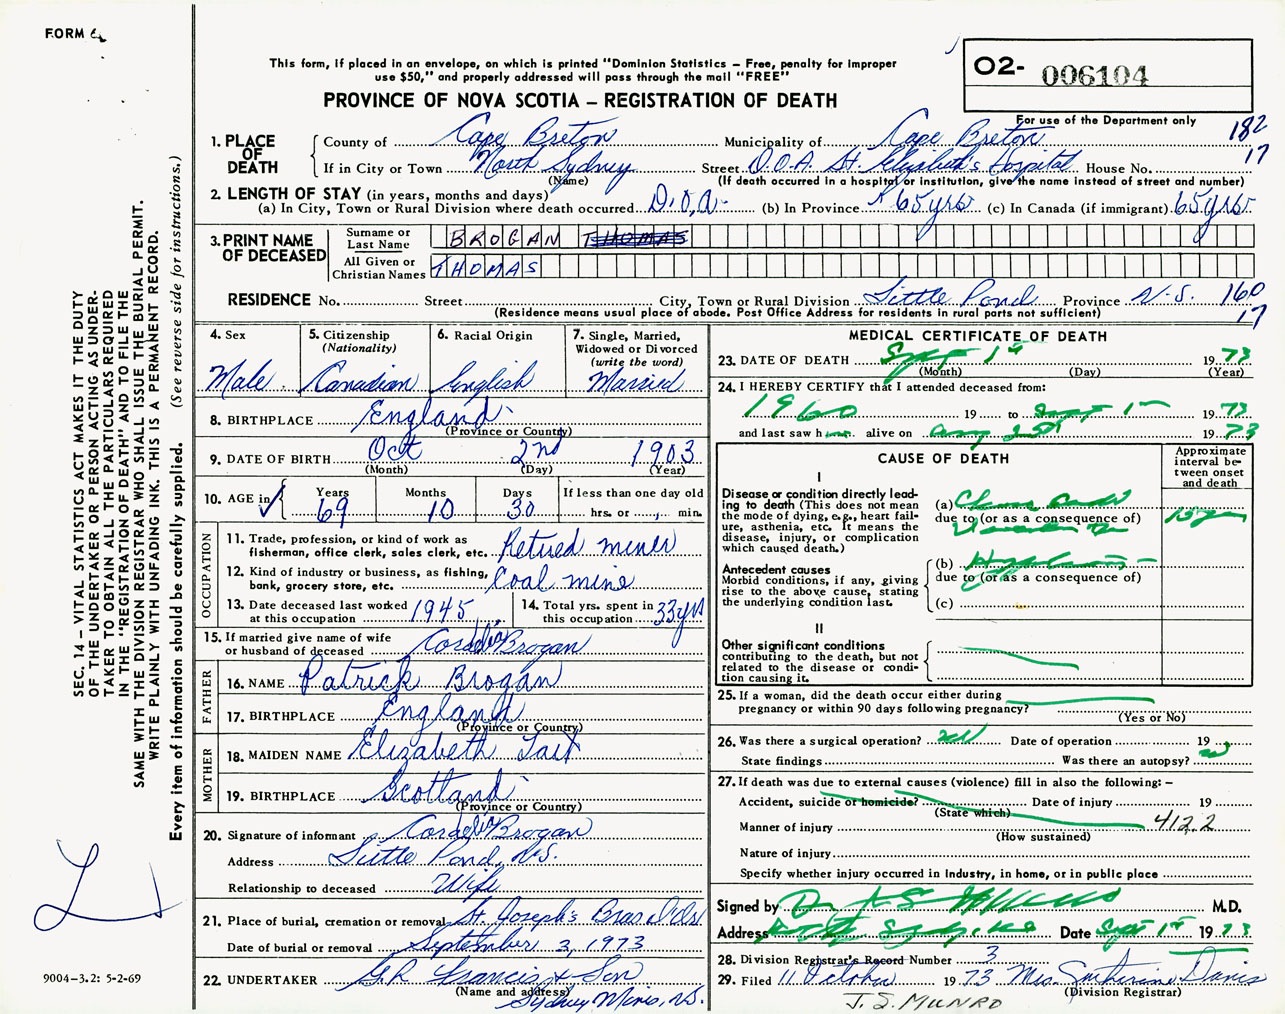 FORM 6
This form, if placed in an envelope, on which is printed "Dominion Statistics – Free, penalty for improper
use $50," and properly addressed will pass through the mail "FREE"
PROVINCE OF NOVA SCOTIA – REGISTRATION OF DEATH
O2- 006104
For use of the Department only
182
17
1. PLACE OF DEATH
County of Cape Breton Municipality of Cape Breton
If in City or Town North Sydney Street D.O.A. St. Elizabeth's Hospital House No.
(Name) (If death occurred in a hospital or institution, give the name instead of street and number)
2. LENGTH OF STAY (in years, months and days)
(a) In City, Town or Rural Division where death occurred D.O.A. (b) In Province 65 yrs (c) In Canada (if immigrant) 65 yrs
3. PRINT NAME OF DECEASED
Surname or Last Name BROGAN THOMAS
All Given or Christian Names THOMAS
RESIDENCE No. Street City, Town or Rural Division Little Pond Province N.S. 160
(Residence means usual place of abode. Post Office Address for residents in rural parts not sufficient) 17
4. Sex Male
5. Citizenship (Nationality) Canadian
6. Racial Origin English
7. Single, Married, Widowed or Divorced (write the word) Married
8. BIRTHPLACE England
(Province or Country)
9. DATE OF BIRTH Oct 2nd 1903
(Month) (Day) (Year)
10. AGE in Years 69 Months 10 Days 30 If less than one day old hrs. or min.
OCCUPATION
11. Trade, profession, or kind of work as fisherman, office clerk, sales clerk, etc. Retired miner
12. Kind of industry or business, as fishing, bank, grocery store, etc. Coal mine
13. Date deceased last worked at this occupation 1945
14. Total yrs. spent in this occupation 33 yrs
15. If married give name of wife or husband of deceased Cordelia Brogan
FATHER
16. NAME Patrick Brogan
17. BIRTHPLACE England
(Province or Country)
MOTHER
18. MAIDEN NAME Elizabeth Tait
19. BIRTHPLACE Scotland
(Province or Country)
20. Signature of informant Cordelia Brogan
Address Little Pond, N.S.
Relationship to deceased Wife
21. Place of burial, cremation or removal St. Joseph's Bras D'Or
Date of burial or removal September 3, 1973
22. UNDERTAKER G.R. Francis & Son
(Name and address) Sydney Mines, N.S.
MEDICAL CERTIFICATE OF DEATH
23. DATE OF DEATH Sept 1st 1973
(Month) (Day) (Year)
24. I HEREBY CERTIFY that I attended deceased from:
1960 19 to Sept 1st 1973
and last saw him alive on Aug 25th 1973
CAUSE OF DEATH
Approximate interval between onset and death
I
Disease or condition directly leading to death (This does not mean the mode of dying, e.g., heart failure, asthenia, etc. It means the disease, injury, or complication which caused death.)
(a)
due to (or as a consequence of)
Antecedent causes
Morbid conditions, if any, giving rise to the above cause, stating the underlying condition last.
(b)
due to (or as a consequence of)
(c)
II
Other significant conditions
contributing to the death, but not related to the disease or condition causing it.
25. If a woman, did the death occur either during pregnancy or within 90 days following pregnancy?
(Yes or No)
26. Was there a surgical operation? Date of operation 19
State findings Was there an autopsy?
27. If death was due to external causes (violence) fill in also the following: –
Accident, suicide or homicide? Date of injury 19
(State which)
Manner of injury 4122
(How sustained)
Nature of injury
Specify whether injury occurred in industry, in home, or in public place
Signed by M.D.
Address Date Sept 1st 1973
28. Division Registrar's Record Number 3
29. Filed 11 October 1973 Mrs. Davis
(Division Registrar)
J. S. MUNRO
SEC. 14 – VITAL STATISTICS ACT MAKES IT THE DUTY
OF THE UNDERTAKER OR PERSON ACTING AS UNDER-
TAKER TO OBTAIN ALL THE PARTICULARS REQUIRED
IN THE "REGISTRATION OF DEATH" AND TO FILE THE
SAME WITH THE DIVISION REGISTRAR WHO SHALL ISSUE THE BURIAL PERMIT.
WRITE PLAINLY WITH UNFADING INK. THIS IS A PERMANENT RECORD.
Every item of information should be carefully supplied. (See reverse side for instructions.)
9004–3.2: 5-2-69